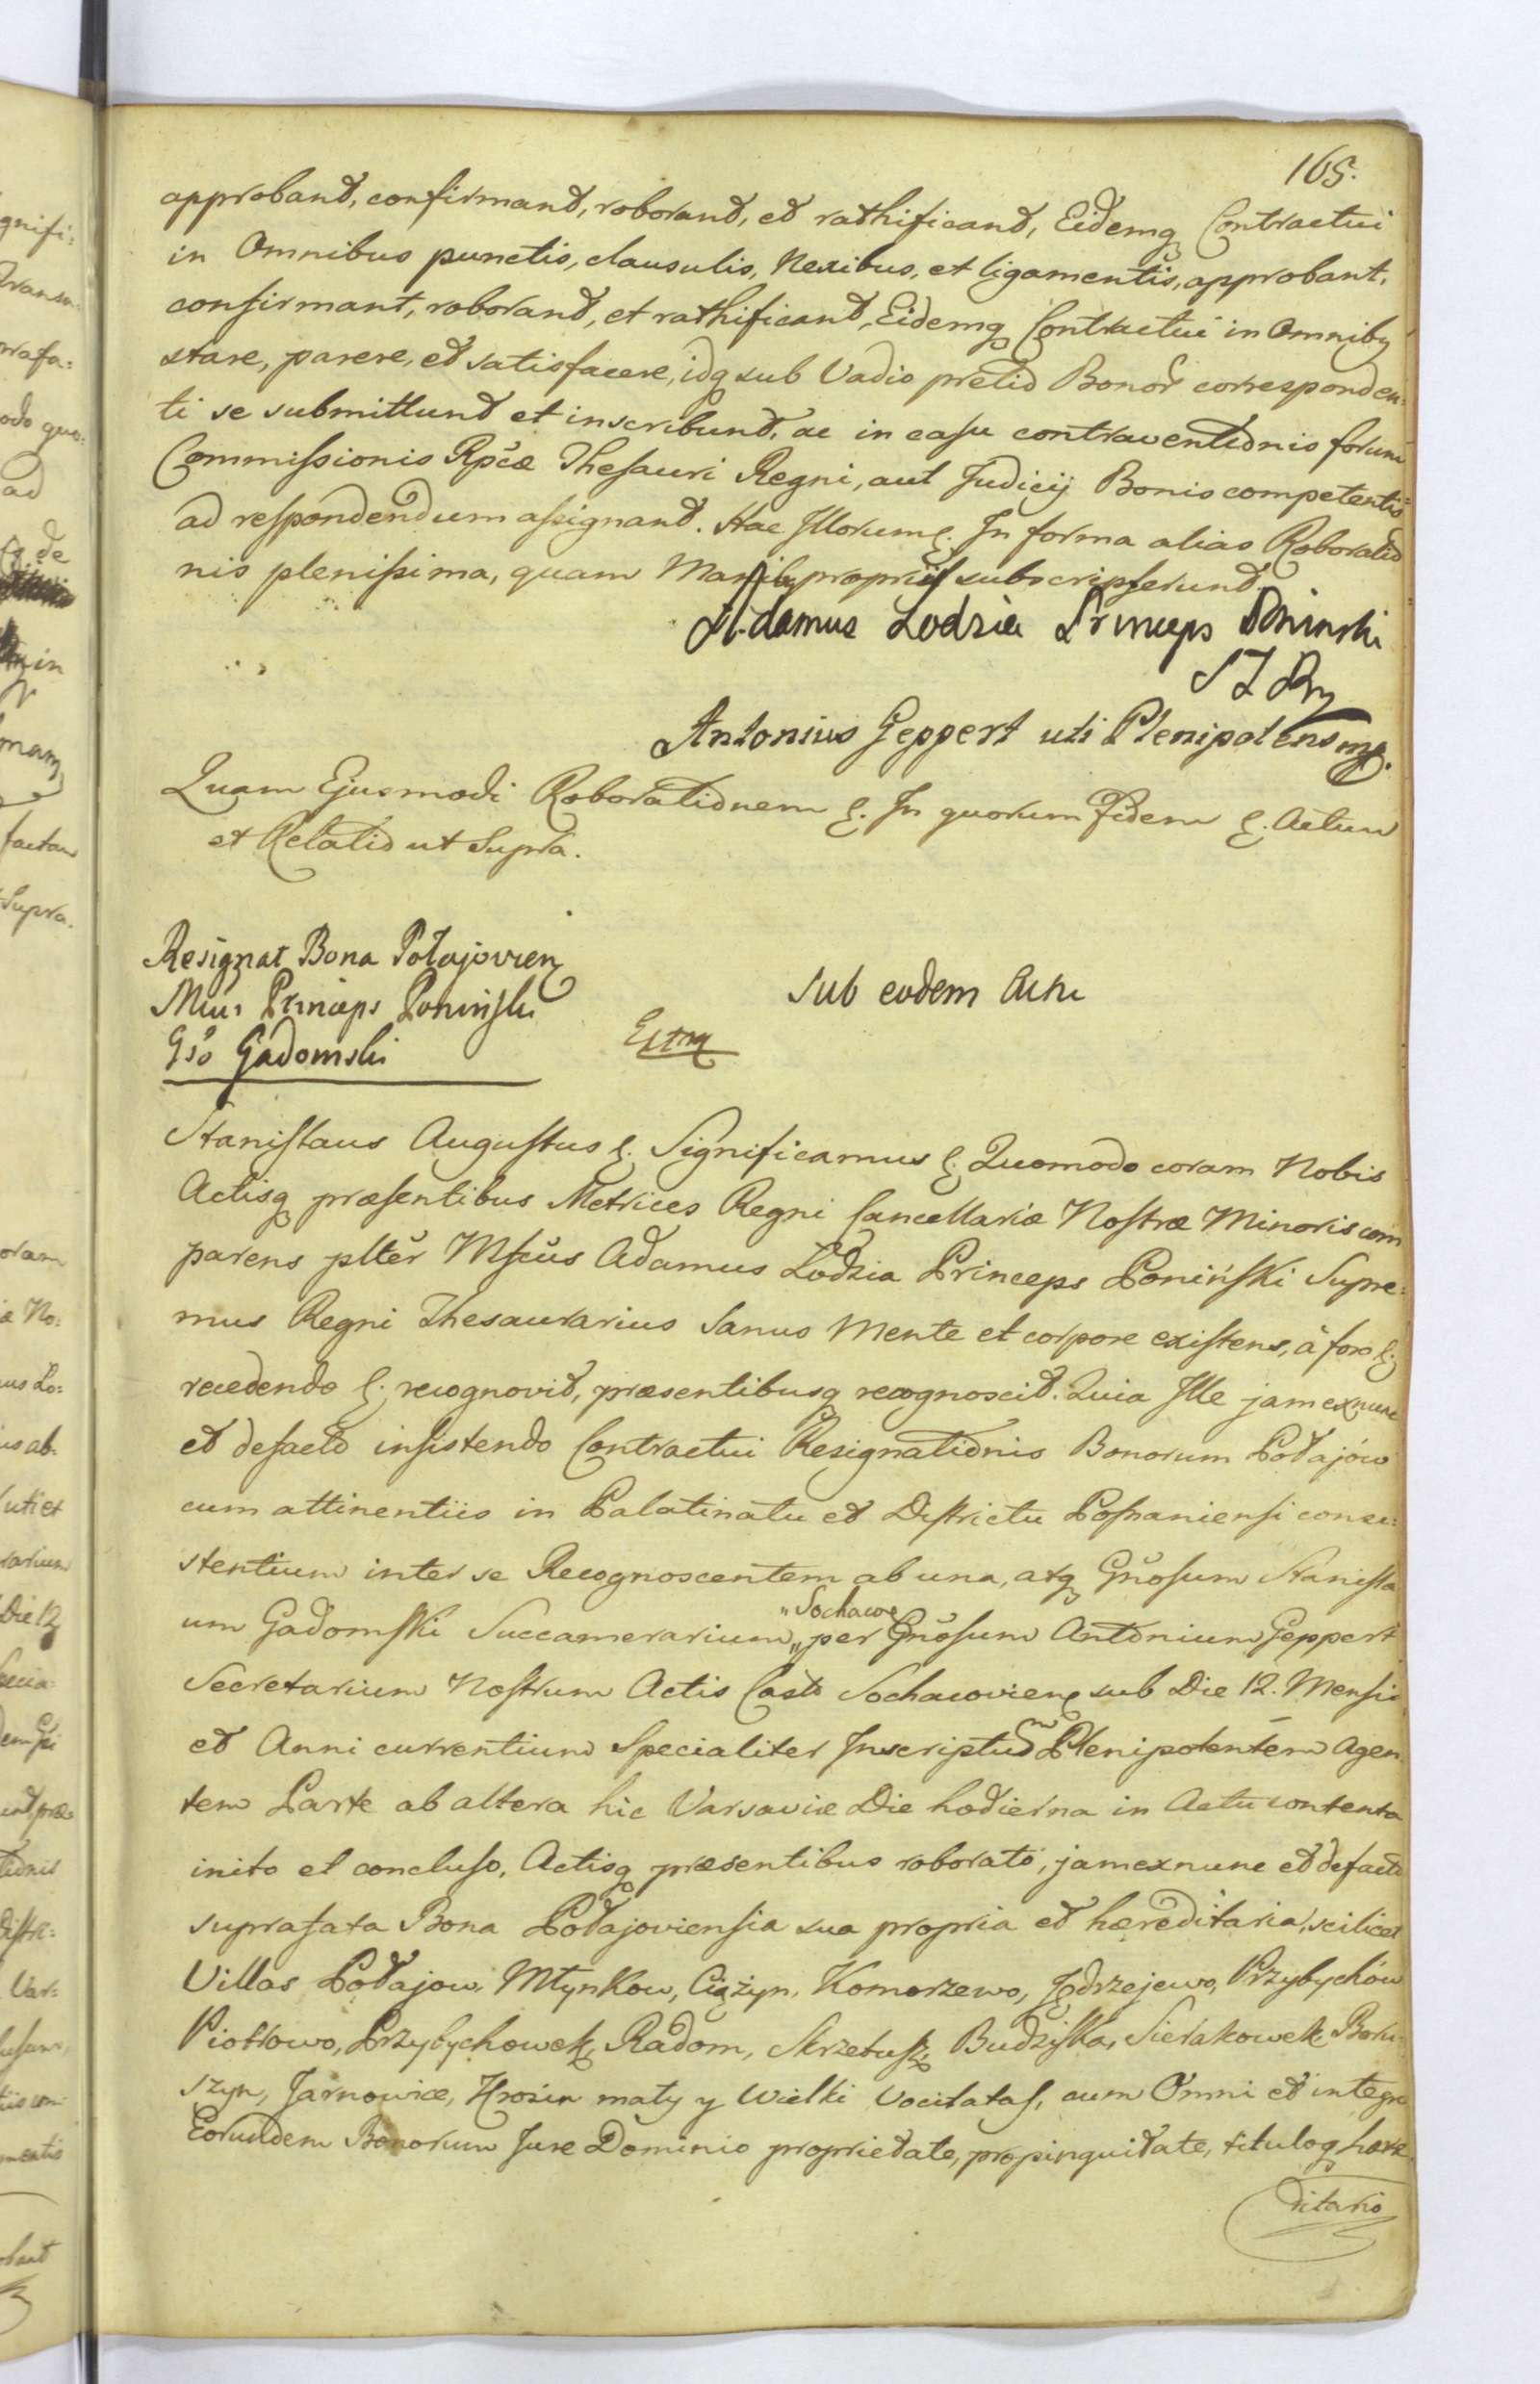 165.
approbant, confirmant, roborant, et rathificant, Eidemq Contractui
in Omnibus punctis, clausulis, Nexibus, et ligamentis, approbant,
confirmant, roborant, et rathificant, Eidemq Contractui in Omniby
stare, parere, et satisfacere, idq sub Vadio pretio Bonor corresponden=
ti se submittunt et inscribunt, ac in casu contraventionis forum
Commissionis Rpcæ Thesauri Regni, aut Judicij Bonis competentis
ad respondendum assignant. Hac Illorum &. In forma alias Roboratio
nis plenissima, quam Maniby proprijs subscripserunt.
Adamus Lodzia Princeps Poninski
Antonius Geppert uti Plenipotens mp.
Quam Ejusmodi Roborationem &. In quorum Fidem &. Actum
et Relatio ut Supra.
Resignat Bona Połajovien
Princeps Poninski
Gso Gadomski
Sub eodem Actu
Stanislaus Augustus &. Significamus &. Quomodo coram Nobis
Actisq præsentibus Metrices Regni Cancellariæ Nostræ Minoris com
parens plter Mfcus Adamus Lodzia Princeps Poniński Supre=
mus Regni Thesaurarius Sanus Mente et corpore existens, à foro &.
recedendo &. recognovit, præsentibusq recognoscit. Quia Ille jam exnunc
et defacto insistendo Contractui Resignationis Bonorum Połajów
cum attinentiis in Palatinatu et Districtu Posnaniensi consi=
stentium inter se Recognoscentem ab una, atq Gnosum Stanisla
um Gadomski Succamerarium „Sochacw„ per Gnosum Antonium Geppert
Secretarium Nostrum Actis Casto Sochacovien sub Die 12. Mensis
et Anni currentium Specialiter Inscriptum Plenipotentem Agen
tem Parte ab altera hic Varsaviæ Die hodierna in Actu contenta
inito et concluso, Actisq præsentibus roborato, jam exnunc et defacto
suprafata Bona Połajoviensia sua propria et hæreditaria, scilicet
Villas Połajow, Młynkow, Ciążyn, Komorzewo, Jędrzejewo, Przybychów
Piotrowo, Przybychowek, Radom, Skrzetusz, Budziska, Sierakowek, Boru=
szyn, Jarnowice, Krosin mały y Wielki Vocitatas, cum Omni et integro
Eorundem Bonorum Jure Dominio proprietate, propinquitate, tituloq hære
ditario